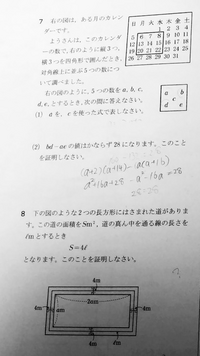 7 右の図は，ある月のカレン
ダーです。
ようさんは，このカレンダ
ーの数で，右のように縦3つ，
横3つを四角形で囲んだとき，
対角線上に並ぶ5つの数につい
て調べました。
日 月 火 水 木 金 土
1 2 3 4
5 6 7 8 9 10 11
12 13 14 15 16 17 18
19 20 21 22 23 24 25
26 27 28 29 30 31
右の図のように，5つの数を a，b，c，
d，e，とするとき，次の問に答えなさい。
a b
c
d e
(1) a を，c を使った式で表しなさい。
(2) bd－ae の値はかならず 28 になります。このこと
を証明しなさい。
(a+2)(a+14)-a(a+16)
a²+16a+28-a²-16a=28
8 下の図のような2つの長方形にはさまれた道がありま
す。この道の面積を Sm²，道の真ん中を通る線の長さを
ℓm とするとき
S＝4ℓ
となります。このことを証明しなさい。
4m
4m
am
2am
4m
4m
ℓm